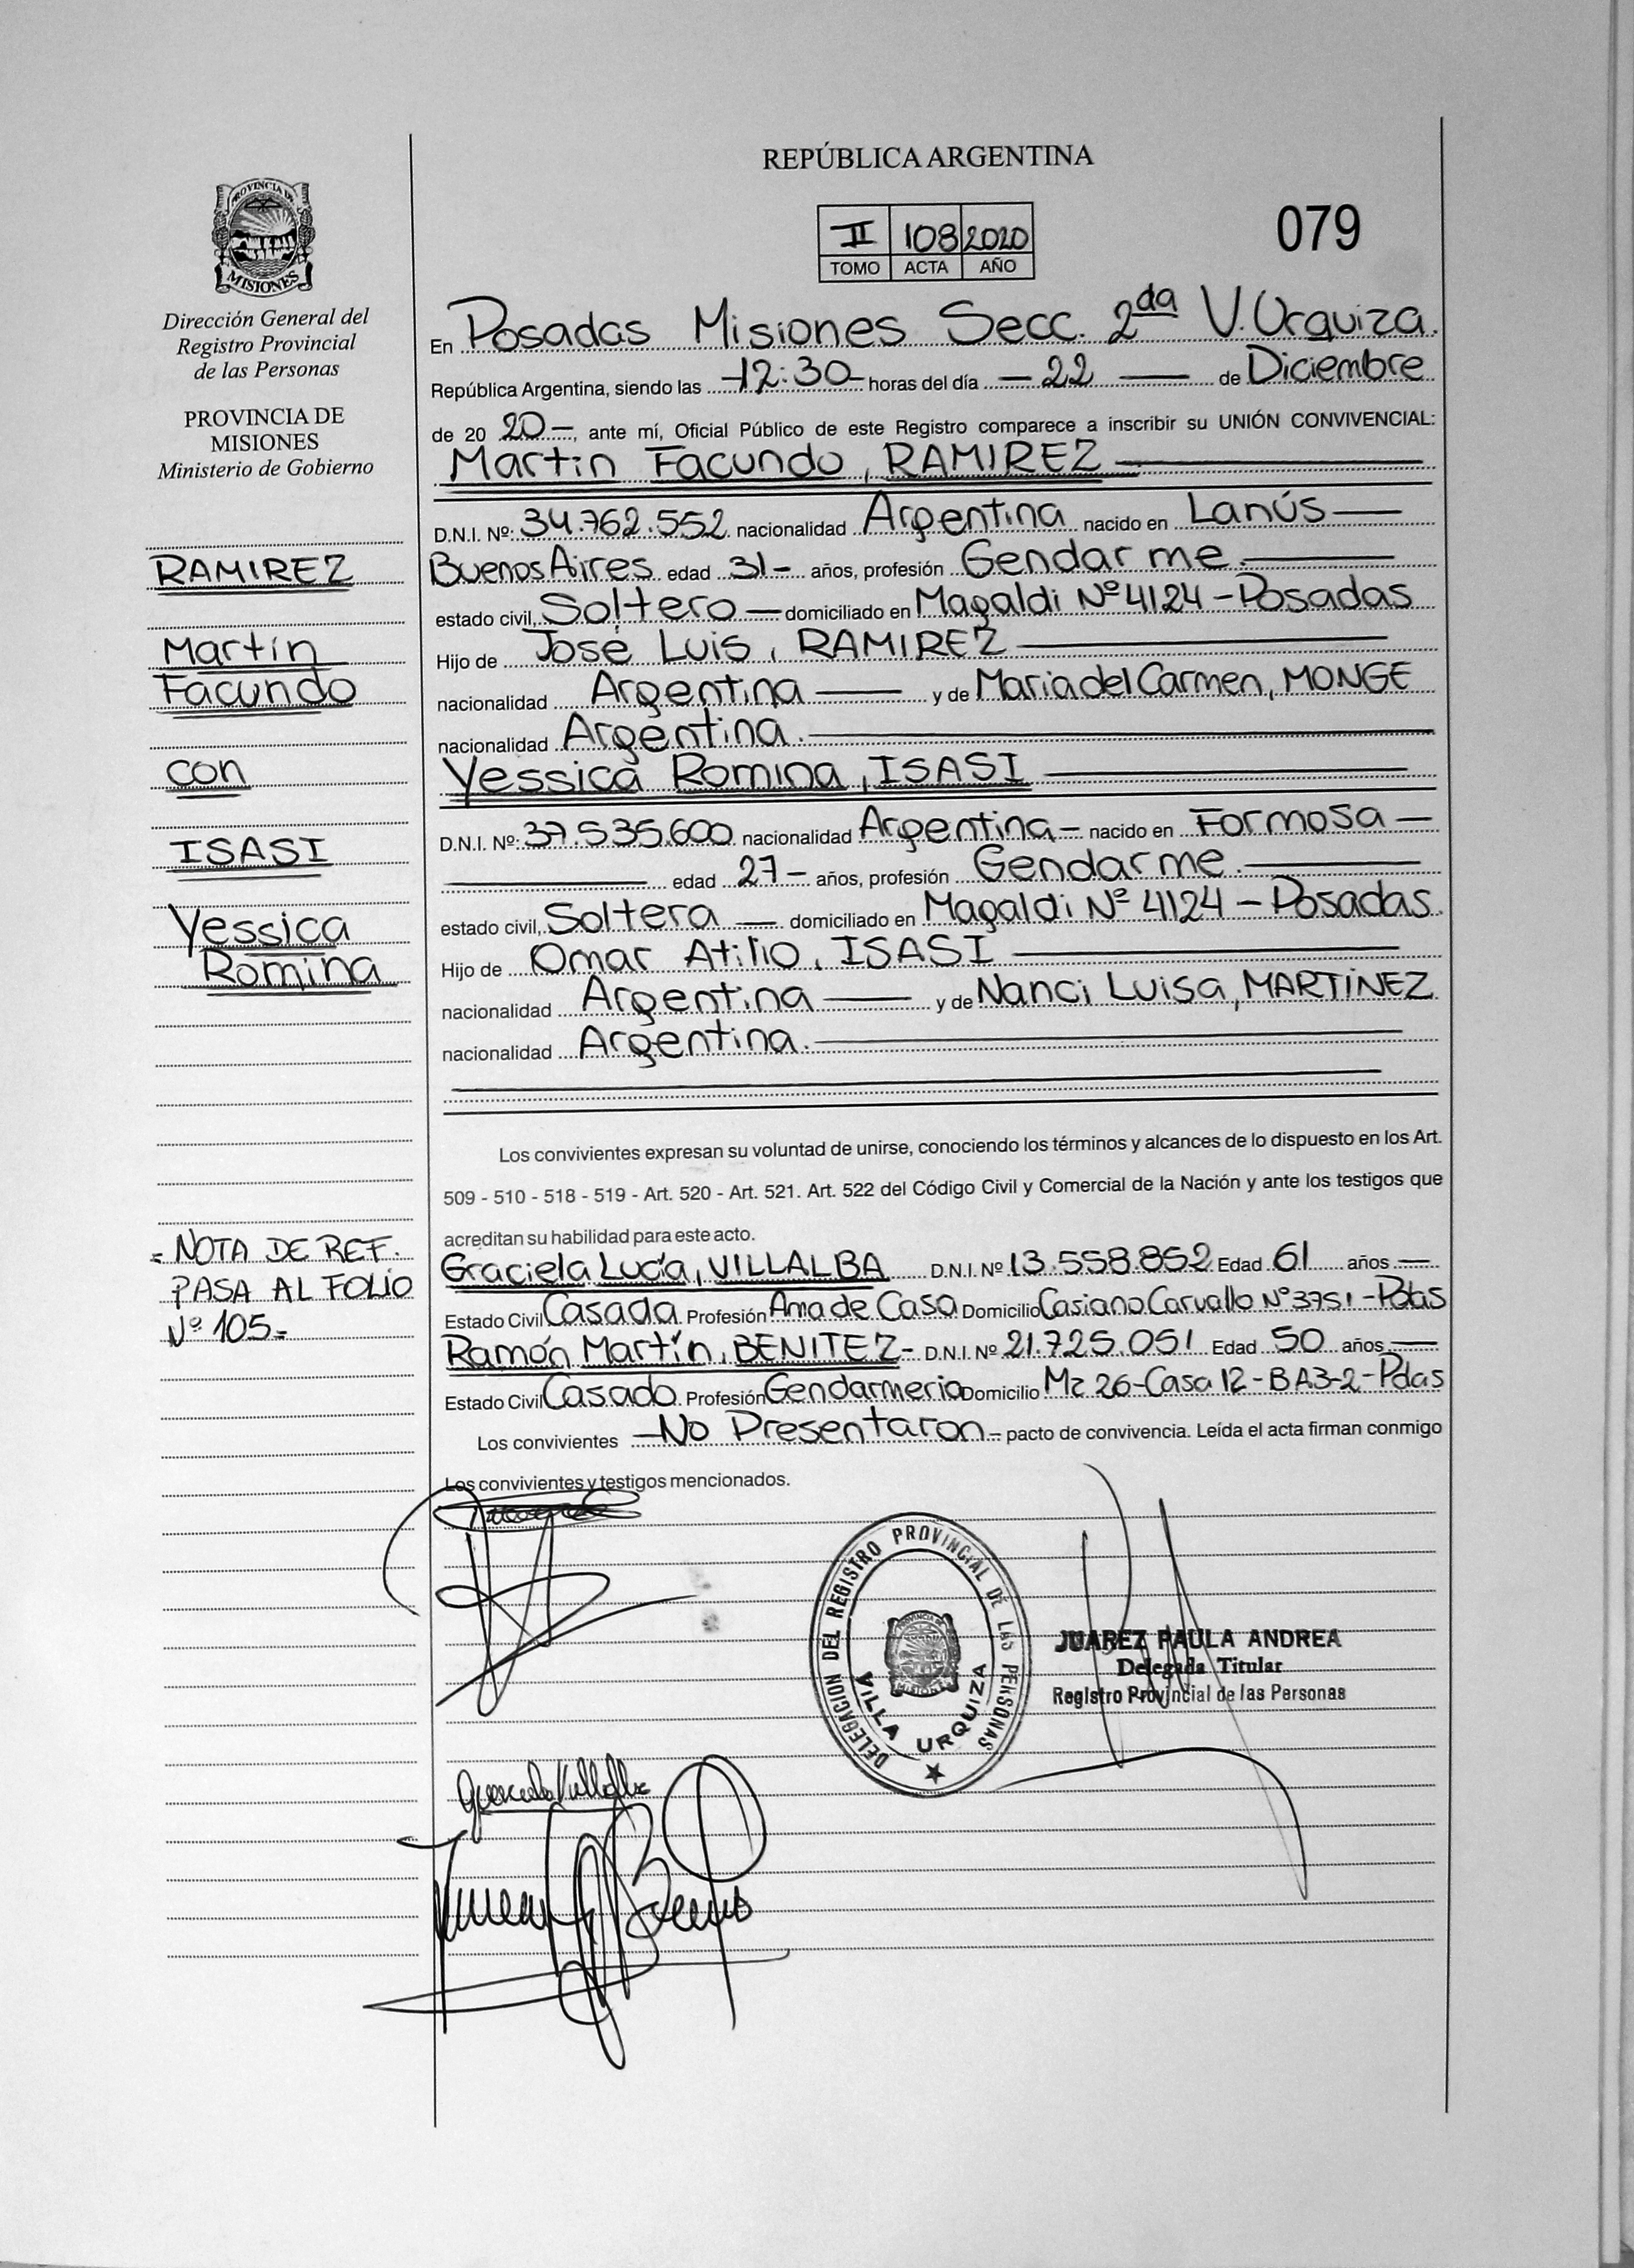 REPÚBLICA ARGENTINA
079
II 108 2020
TOMO ACTA AÑO
PROVINCIA DE
MISIONES
Dirección General del
Registro Provincial
de las Personas
PROVINCIA DE
MISIONES
Ministerio de Gobierno
RAMIREZ
Martín
Facundo
con
ISASI
Yessica
Romina
= NOTA DE REF.
PASA AL FOLIO
Nº 105.-
En Posadas Misiones Secc. 2da V. Urquiza.
República Argentina, siendo las -12:30- horas del día - 22 - de Diciembre
de 20 20-, ante mí, Oficial Público de este Registro comparece a inscribir su UNIÓN CONVIVENCIAL:
Martín Facundo, RAMIREZ
D.N.I. Nº: 34.762.552 nacionalidad Argentina nacido en Lanús
Buenos Aires edad 31- años, profesión Gendarme.
estado civil, Soltero - domiciliado en Magaldi Nº 4124 - Posadas
Hijo de José Luis, RAMIREZ
nacionalidad Argentina y de Maria del Carmen, MONGE
nacionalidad Argentina.
Yessica Romina, ISASI
D.N.I. Nº: 37.535.600 nacionalidad Argentina - nacido en Formosa -
edad 27 - años, profesión Gendarme.
estado civil, Soltera - domiciliado en Magaldi Nº 4124 - Posadas.
Hijo de Omar Atilio, ISASI
nacionalidad Argentina y de Nanci Luisa, MARTÍNEZ
nacionalidad Argentina.
Los convivientes expresan su voluntad de unirse, conociendo los términos y alcances de lo dispuesto en los Art.
509 - 510 - 518 - 519 - Art. 520 - Art. 521. Art. 522 del Código Civil y Comercial de la Nación y ante los testigos que
acreditan su habilidad para este acto.
Graciela Lucía, VILLALBA D.N.I. Nº 13.558.852 Edad 61 años -
Estado Civil Casada Profesión Ama de Casa Domicilio Casiano Carvallo Nº 3751 - Pdas
Ramón Martín, BENITEZ - D.N.I. Nº 21.725.051 Edad 50 años
Estado Civil Casado Profesión Gendarmeria Domicilio Mz 26 - Casa 12 - B A3-2 - Pdas
Los convivientes - No Presentaron - pacto de convivencia. Leída el acta firman conmigo
Los convivientes y testigos mencionados.
DELEGACION DEL REGISTRO PROVINCIAL DE LAS PERSONAS
PROVINCIA DE
MISIONES
VILLA URQUIZA
JUAREZ PAULA ANDREA
Delegada Titular
Registro Provincial de las Personas
Graciela Villalba